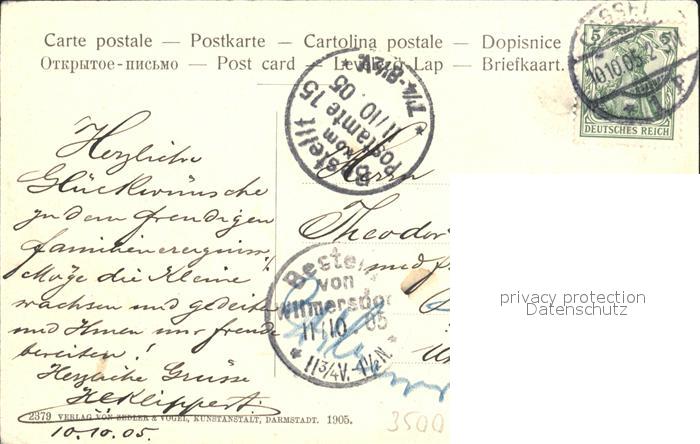 Carte postale — Postkarte — Cartolina postale — Dopisnice
Открытое-письмо — Post card — Levelező-Lap — Briefkaart.
5 5
10.10.05.2-3N
DEUTSCHES REICH
Bestellt
vom
Postamte 15
11/10.05
7¼-8½V.
Herrn
Theodor
Bestellt
von
Wilmersdorf
11/10.05
11¾V.-1½N.
Herzliche
Glückwünsche
zu dem freudigen
Familienereignis.
Möge die Kleine
wachsen und gedeihen
und Ihnen nur Freude
bereiten!
Herzliche Grüsse
H. Klippert.
2379 VERLAG VON ZEDLER & VOGEL, KUNSTANSTALT, DARMSTADT. 1905.
10.10.05.
3500
privacy protection
Datenschutz